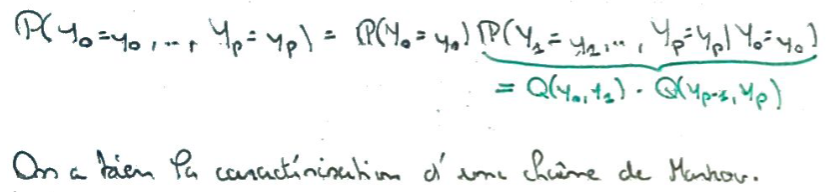 P(Y₀=y₀,..., Yₚ=yₚ) = P(Y₀=y₀) P(Y₁=y₁,..., Yₚ=yₚ|Y₀=y₀)
= Q(y₀,y₁) · Q(yₚ₋₁,yₚ)
On a bien la caractérisation d'une chaîne de Markov.